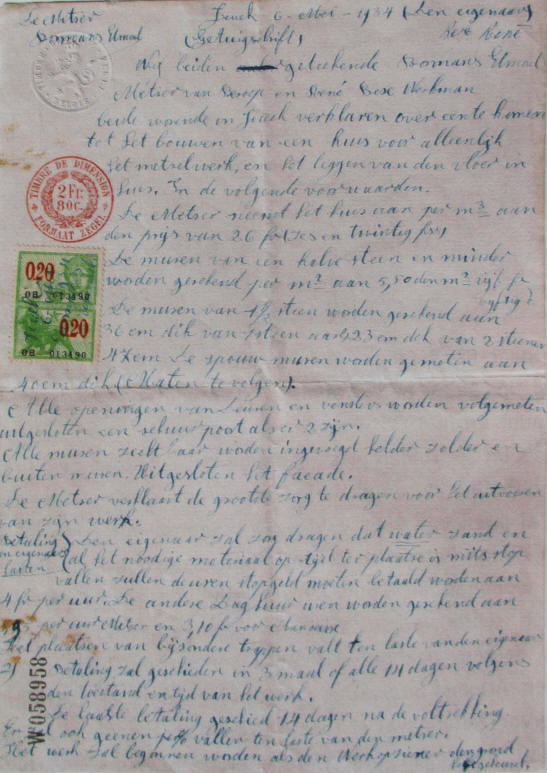 De Metser Genck 6 - Mei - 1934 (Den eigenaar)
Vomans Elmond (Getuigschrift) René
Wij beiden ondergeteekende Vomans Elmond
Metser van Beroep en René Werkman
beide wonende in Genck verklaren over een te komen
tot het bouwen van een huis voor alleenlijk
het metselwerk, en het leggen van den vloer in
huis. In de volgende voorwaarden.
De Metser neemt het huis aan per m3 aan
den prijs van 26 fr (zes en twintig frs)
De muren van een halve steen en minder
woden gerekend per m2 aan 5,50 den m2 vijf fr
vyftig c
De muren van 1½ steen woden gerekend aan
36 cm dik van 1 steen aan 23 cm dik van 2 steenen
47 cm De spouw muren worden gemeten aan
40 cm dik (Maten te volgen).
Alle openingen van deuren en vensters worden volgemeten
uitgesloten een schuurpoort als er 2 zijn.
Alle muren zichtbaar woden ingevoegd kelder zolder en
buiten muren. Uitgesloten het facade.
De Metser verklaart de grootste zorg te dragen voor het uitvoeren
van zijn werk.
Betaling ) Den eigenaar zal zorg dragen dat water zand en
en eigenaars ( al het noodige materiaal op tijd ter plaatse is mits stop
lasten
vallen zullen de uren stopgeld moeten betaald worden aan
4 fr per uur. De andere Dag huur uren worden gerekend aan
per uur Metser en 3,10 fr voor
Het plaatsen van bijzondere trappen valt ten laste van den eigenaar
2) Betaling zal geschieden in 3 maal of alle 14 dagen volgens
den toestand en tijd van het werk.
De laatste betaling geschied 14 dagen na de voltrekking.
Er zal ook geenen vallen ten laste van den metser.
Het werk zal beginnen worden als den Werkopziener den grond
TIMBRE DE DIMENSION
2 Fr.
80 C.
FORMAAT ZEGEL
0.20
OB 013490
0.20
OB 013490
W058958